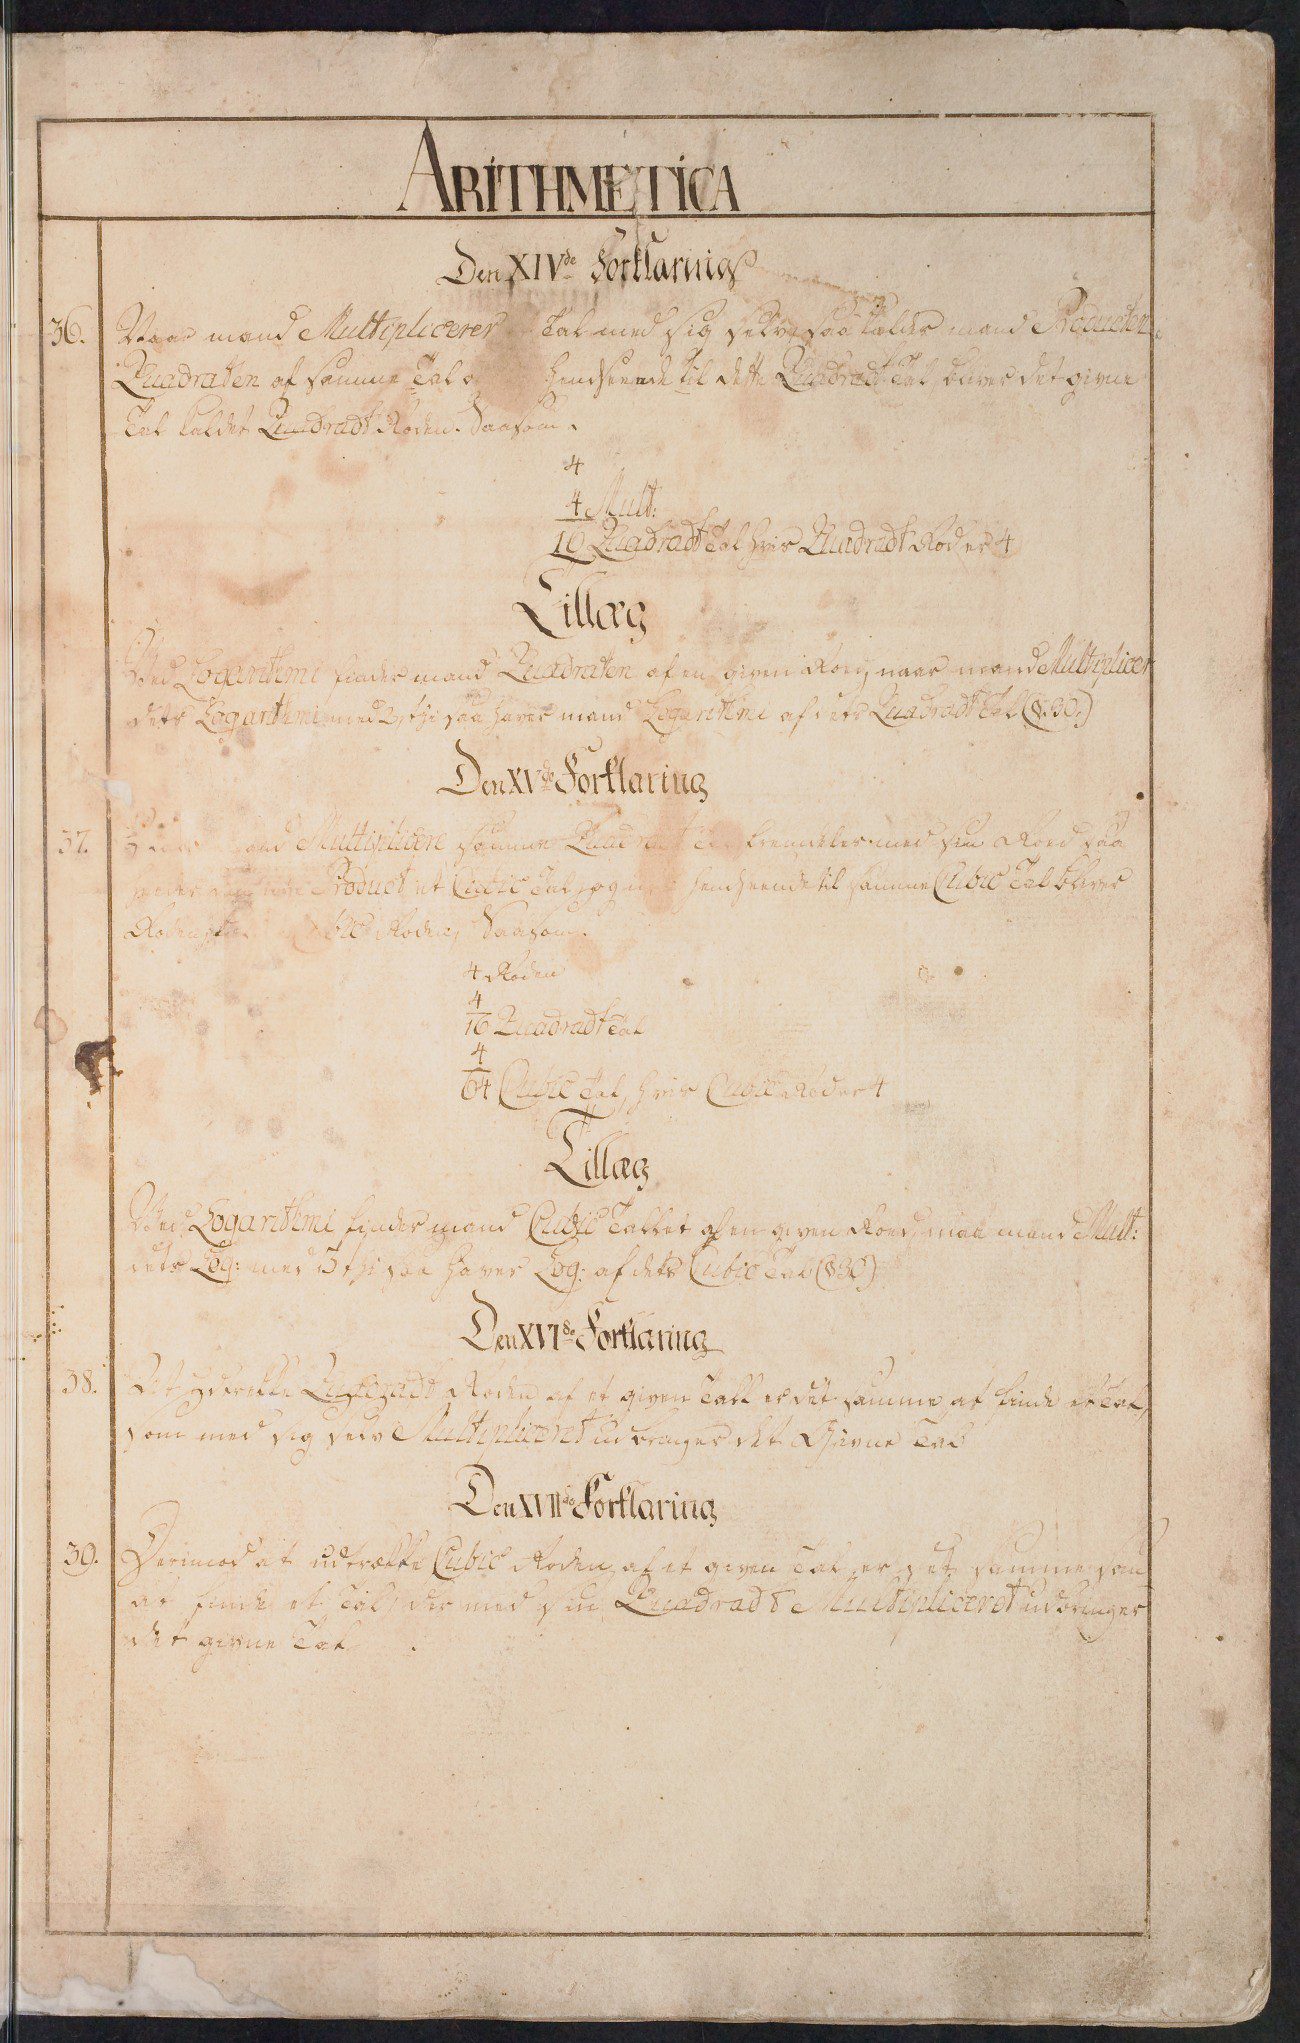 ARITHMETICA
Den XIVde Forklaring
36. Naar mand Multiplicerer Tal med sig selv, saa kaldes mand Producten
Quadraten af samme Tal hendseende til dette Quadradt Tal bliver det givne
Tal kaldet Quadradt Roden. Saasom.
4
4 Mult:
16 Quadradt Tal hvis Quadradt Rod er 4
Tillæg
Ved Logarithmi finder mand Quadraten af en given Roed, naar mand Multiplicer
dets Logarithmi med 2, thi saa haver mand Logarithmi af dets Quadradt Tal (§.30.)
Den XVde Forklaring
37. mand Multiplicere samme Quadrat fremdeles med sin Roed saa
Product et Cubic Tal, og hendseende til samme Cubic Tal bliver
Roden Roden, Saasom.
4 Roden
4
16 Quadradt Tal
4
64 Cubic Tal, hvis Cubic Rod er 4
Tillæg
Ved Logarithmi finder mand Cubic Tallet af en given Roed, naar mand Mult:
dets Log: med 3 thi saa haver Log: af dets Cubic Tal (§30)
Den XVIde Forklaring
38. Roden af et given Tall er det samme, at finde et Tal,
som med sig selv Multipliceret udbringer det Givne Tal
Den XVIIde Forklaring
39. Derimod at udtrække Cubic Roden af et given Tal, er det samme som
at finde et Tal, der med sin Quadradt Multipliceret udbringer
det givne Tal